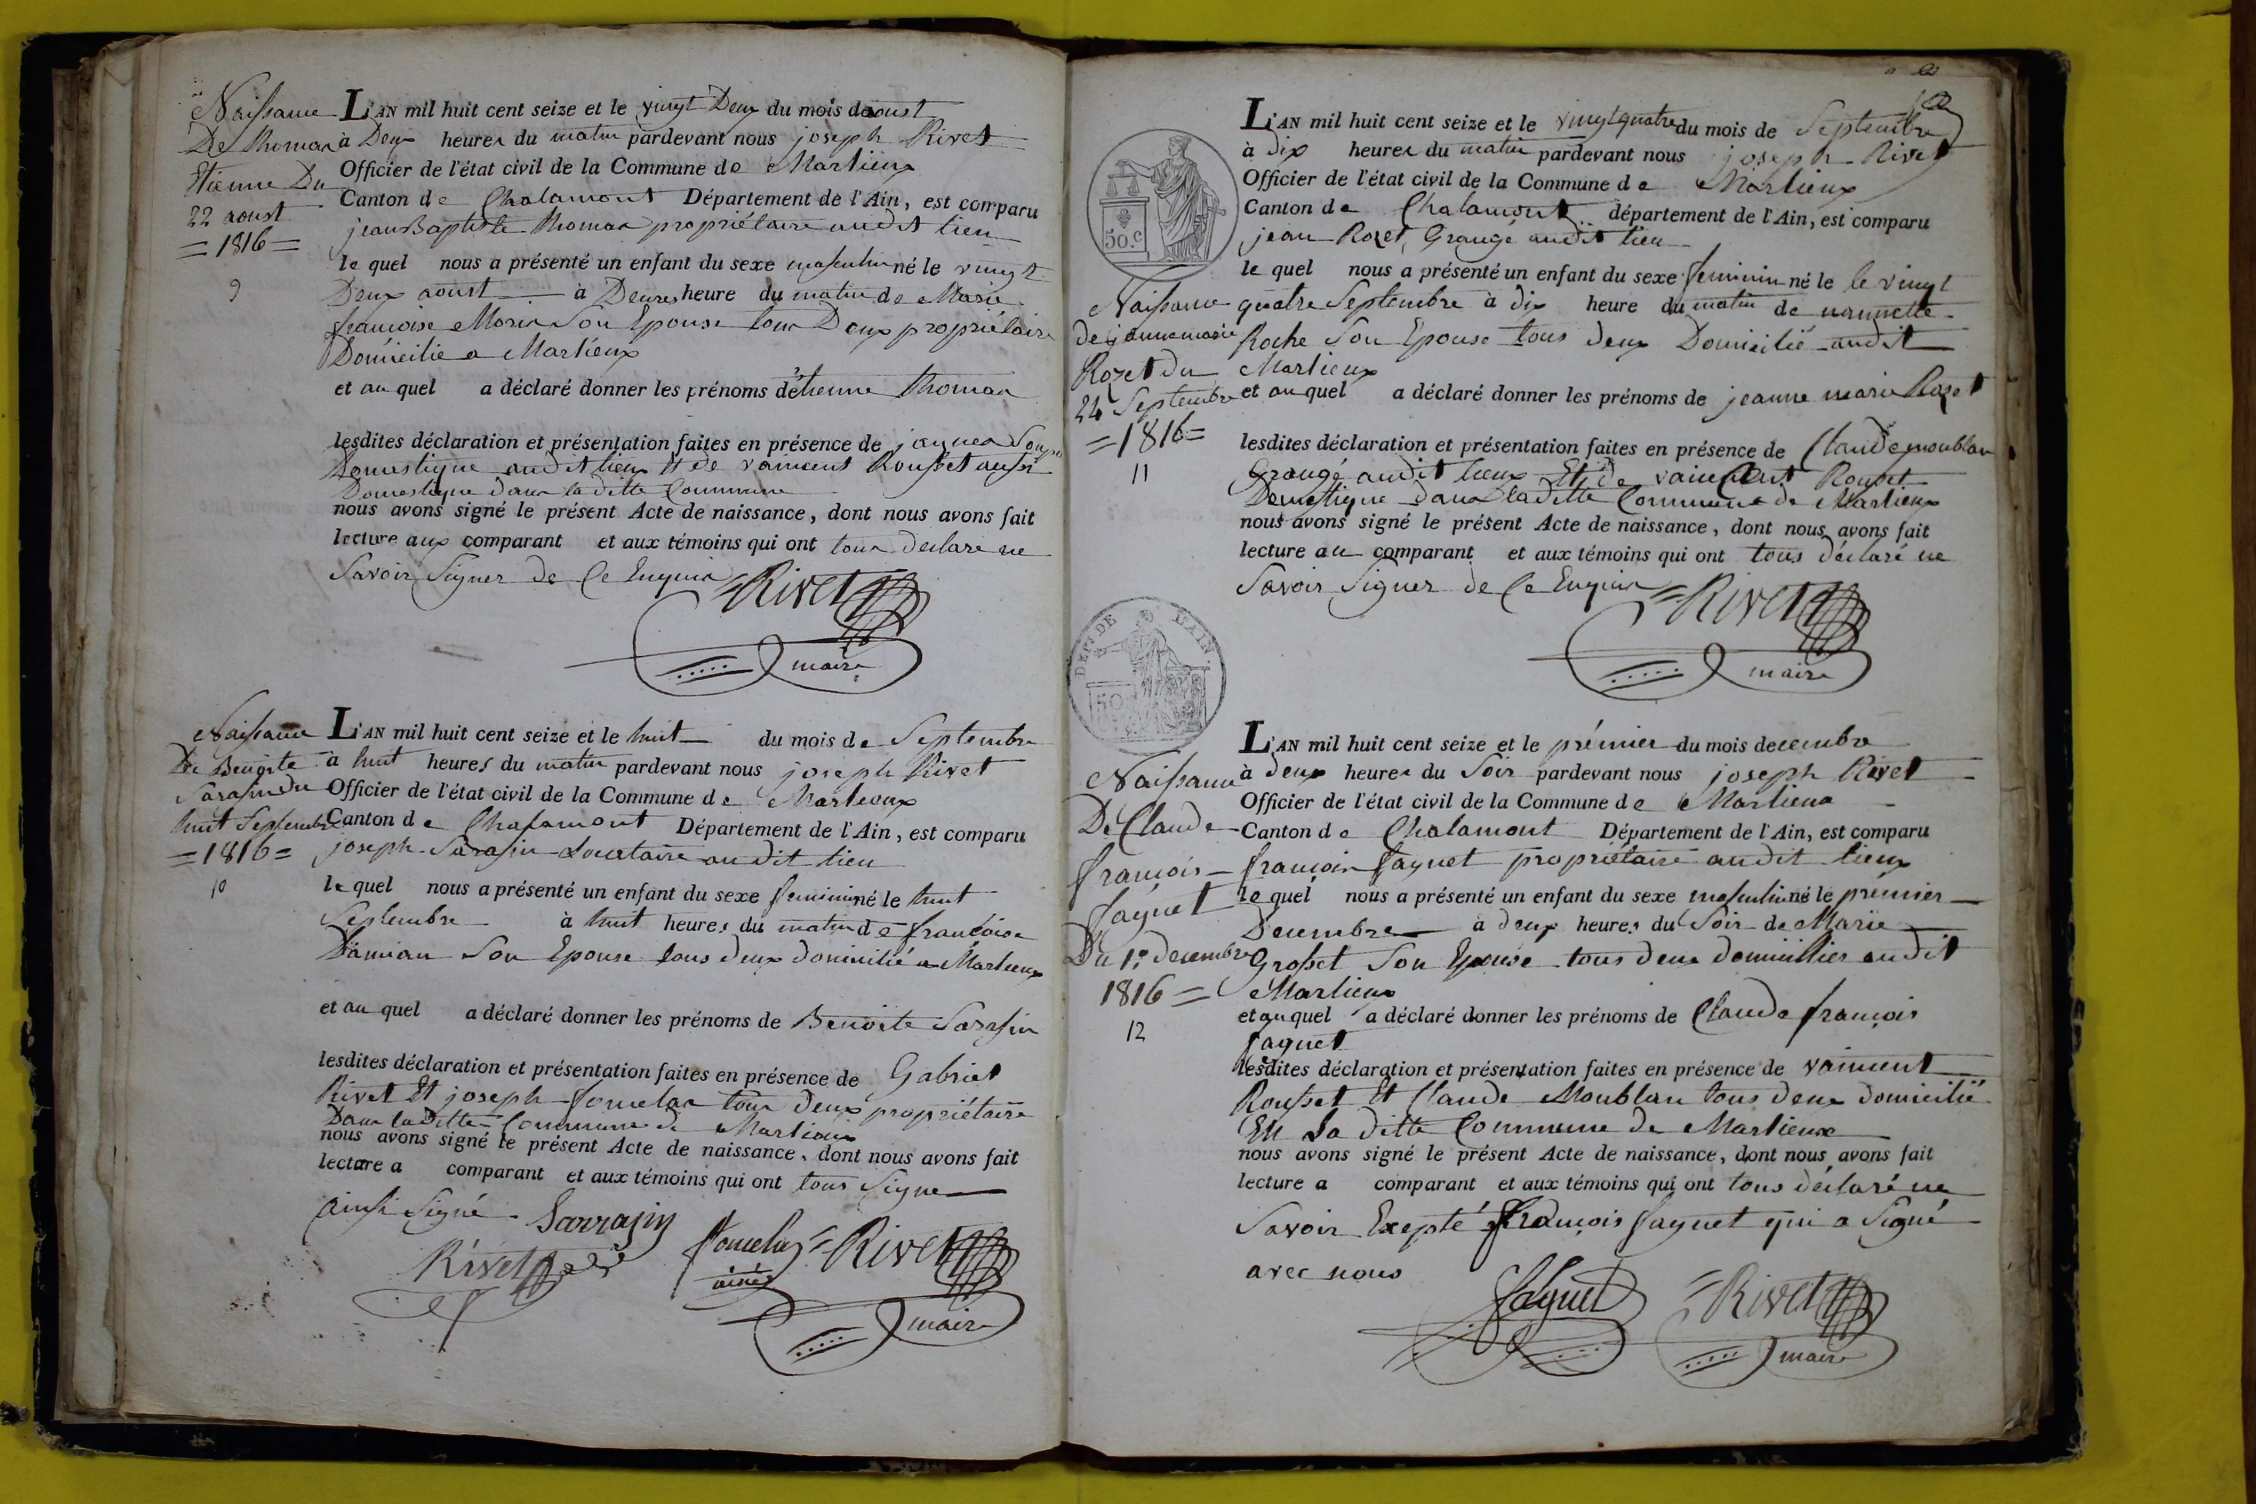 Naissance
De thomas
Etienne Du
22 aoust
= 1816 =
9
L'AN mil huit cent seize et le vingt Deux du mois de aoust
à Deux heures du matin pardevant nous joseph Rivet
Officier de l'état civil de la Commune de Marlieux
Canton de Chalamont Département de l'Ain, est comparu
jean Baptiste thomas propriétaire audit lieu
le quel nous a présenté un enfant du sexe masculin né le vingt
Deux aoust à Deux heure du matin de Marie
francoise Morin Son Epouse tous Deux propriétaire
Domicilie a Marlieux
et au quel a déclaré donner les prénoms détienne thomas
lesdites déclaration et présentation faites en présence de jaques
Domestique audit lieux Et de vaincent Rousset aussi
Domestique Dans la ditte Commune
nous avons signé le présent Acte de naissance, dont nous avons fait
lecture aux comparant et aux témoins qui ont tous declare ne
Savoir Signer de Ce Enquis =Rivet
maire
Naissance
De Benoite
Sarasin du
huit Septembre
= 1816 =
10
L'AN mil huit cent seize et le huit du mois de Septembre
à huit heures du matin pardevant nous joseph Rivet
Officier de l'état civil de la Commune de Marlieux
Canton de Chalamont Département de l'Ain, est comparu
joseph Sarasin Locataire audit lieu
le quel nous a présenté un enfant du sexe feminin né le huit
Septembre à huit heures du matin de francoise
Damian Son Epouse tous deux domicilié a Marlieux
et au quel a déclaré donner les prénoms de Benoite Sarasin
lesdites déclaration et présentation faites en présence de Gabriel
Rivet Et joseph fomelas tous deux propriétaire
Dans la Ditte Commune de Marlieux
nous avons signé le présent Acte de naissance, dont nous avons fait
lecture a comparant et aux témoins qui ont tous Signe
ainsi Signé Sarrasin
Rivet fomelas =Rivet
ainé
maire
50.c
Naissance
de jeanne marie
Rozet du
24 Septembre
= 1816 =
11
L'AN mil huit cent seize et le vingt quatre du mois de Septembre
à dix heures du matin pardevant nous joseph Rivet
Officier de l'état civil de la Commune de Marlieux
Canton de Chalamont département de l'Ain, est comparu
jean Rozet, Grangé audit lieu
le quel nous a présenté un enfant du sexe feminin né le le vingt
quatre Septembre à dix heure du matin de nannette
Roche Son Epouse tous deux Domicilié audit
Marlieux
et au quel a déclaré donner les prénoms de jeanne marie Rozet
lesdites déclaration et présentation faites en présence de Claude moublan
Grangé audit lieux Et de vaincent Rousset
Domestique dans la ditte Commune de Marlieux
nous avons signé le présent Acte de naissance, dont nous avons fait
lecture au comparant et aux témoins qui ont tous déclaré ne
Savoir Signer de Ce Enquis =Rivet
maire
DEPT DE L'AIN.
50
Naissance
De Claude
françois
Jaquet
Du 1er decembre
1816 =
12
L'AN mil huit cent seize et le prémier du mois decembre
à deux heures du Soir pardevant nous joseph Rivet
Officier de l'état civil de la Commune de Marlieux
Canton de Chalamont Département de l'Ain, est comparu
françois Jaquet propriétaire audit lieux
le quel nous a présenté un enfant du sexe masculin né le prémier
Decembre à deux heures du Soir de Marie
Grosset Son Epouse tous deux domicillier audit
Marlieux
et au quel a déclaré donner les prénoms de Claude françois
Jaquet
lesdites déclaration et présentation faites en présence de vaincent
Rousset Et Claude Moublan tous deux domicilié
En La ditte Commune de Marlieux
nous avons signé le présent Acte de naissance, dont nous avons fait
lecture a comparant et aux témoins qui ont tous déclaré ne
Savoir Exepté françois Jaquet qui a Signé
avec nous
Jaquet =Rivet
maire